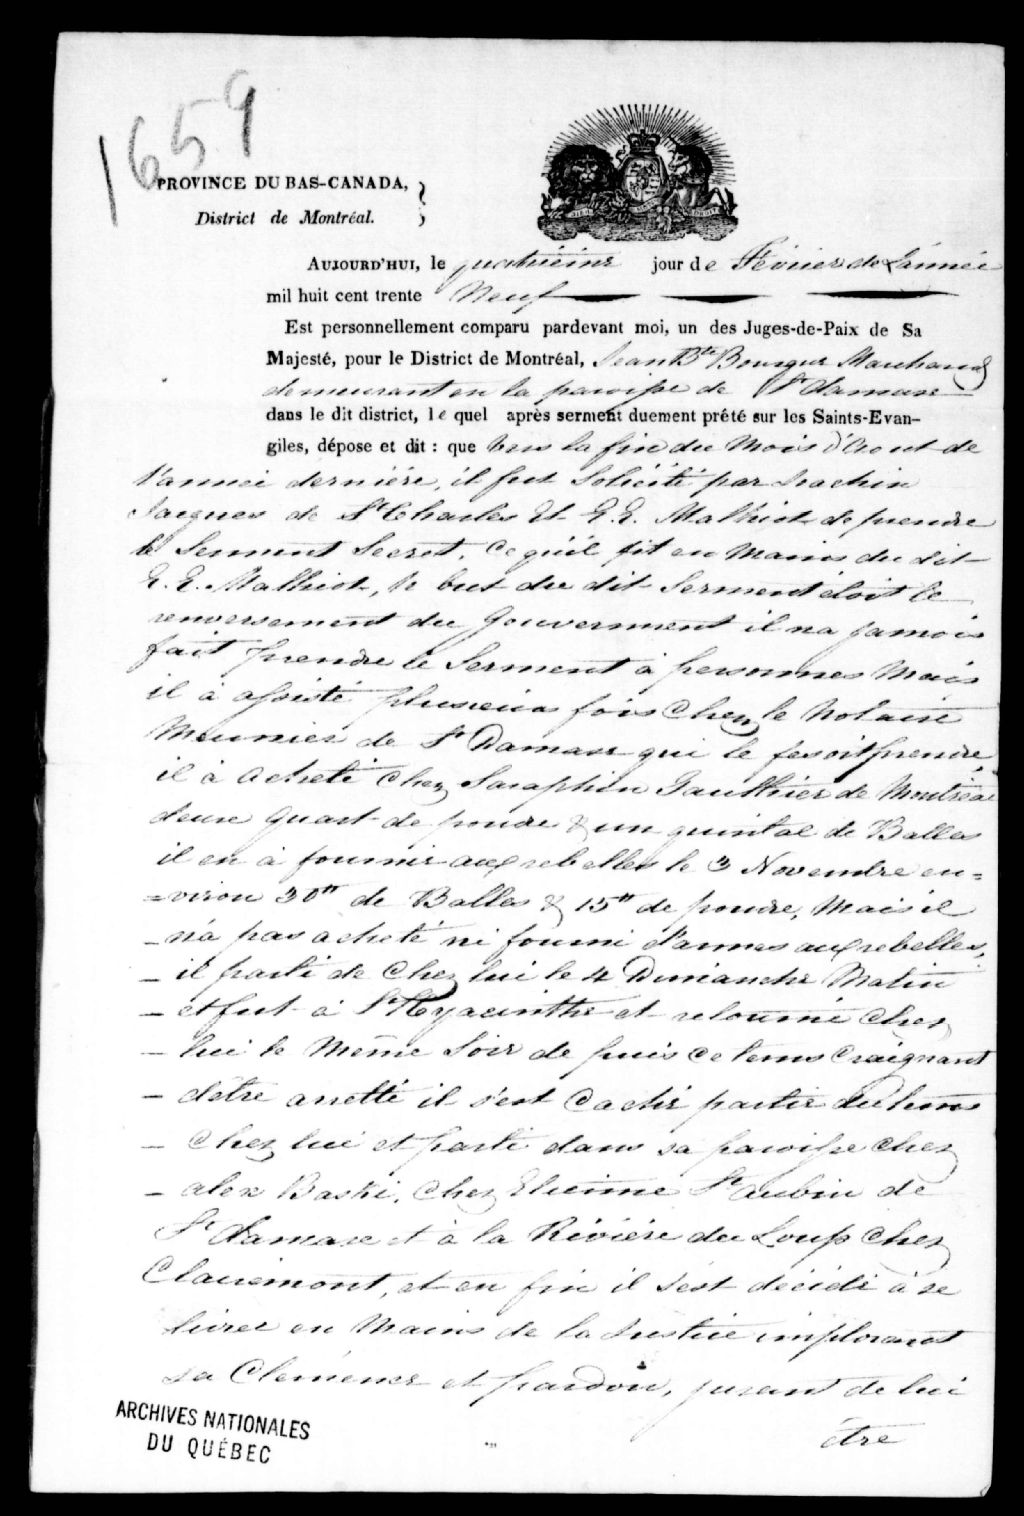 1659
PROVINCE DU BAS-CANADA,
District de Montréal.
AUJOURD'HUI, le quatrième jour de Février de L'année
mil huit cent trente Neuf
Est personnellement comparu pardevant moi, un des Juges-de-Paix de Sa
Majesté, pour le District de Montréal, Jean Bte Bourque Marchand
demeurant en la paroisse de St Damase
dans le dit district, le quel après serment duement prêté sur les Saints-Evan-
giles, dépose et dit : que vers la fin du Mois d'Aout de
l'anneé dernière, il fut Solicité par Joachin
Jacques de St Charles Et E. E. Malhiot de prendre
le Serment Secret. Ce qu'il fit en Mains du dit
E. E. Malhiot, le but du dit Serment étoit le
renversement du Gouvernment il na jamais
fait prendre le Serment à personnes Mais
il à assisté plusieurs fois Chez le Notaire
Meunier de St Damase qui le fesoit prendre
il à acheté Chez Saraphin Gaulthier de Montréal
deux quart de poudre & un quintal de Balles
il en à fournir aux rebelles le 3 Novembre en=
=viron 30tt de Balles & 15tt de poudre, Mais il
n'a pas acheté ni fourni d'armes aux rebelles,
il parti de Chez lui le 4 Dimanche Matin
et fut à St Hyacinthe et retourné Chez
lui le Même Soir de puis ce tems Craignant
d'être arretté il s'est Caché partie du tems
Chez lui et parti dans sa paroisse Chez
alex Baski, Chez Etienne St aubin de
St Damase et à la Rivière du Loup Chez
Clairemont, et en fin il s'est décidé à se
livrer en Mains de la Justice implorant
sa Clemence et pardon, jurant de lui
être
ARCHIVES NATIONALES
DU QUÉBEC